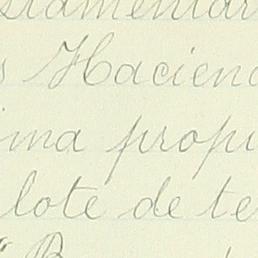 stamentar
s Hacien
ima propi
lote de te